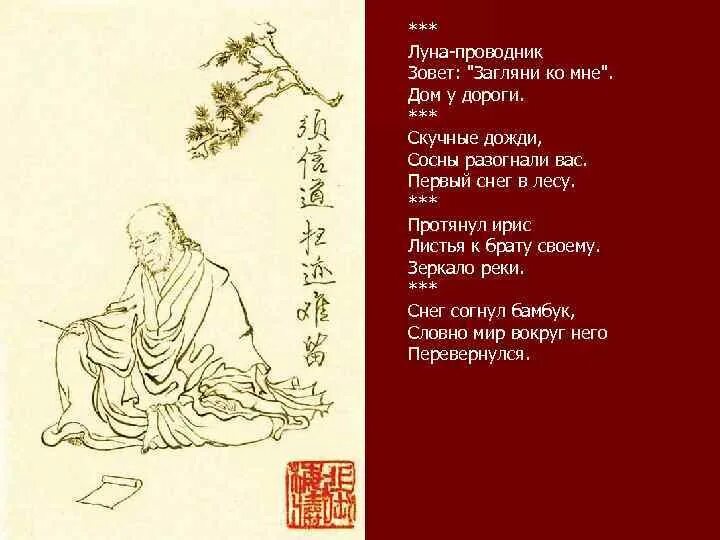 須信道迹难留
***
Луна-проводник
Зовет: "Загляни ко мне".
Дом у дороги.
***
Скучные дожди,
Сосны разогнали вас.
Первый снег в лесу.
***
Протянул ирис
Листья к брату своему.
Зеркало реки.
***
Снег согнул бамбук,
Словно мир вокруг него
Перевернулся.